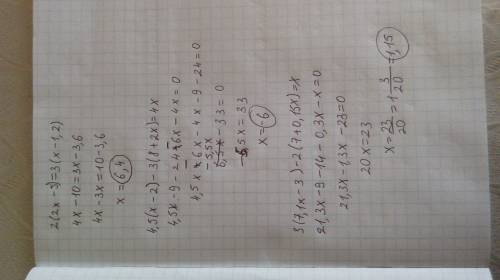 2(2x-5)=3(x-1,2)
4x-10=3x-3,6
4x-3x=10-3,6
x=6,4
4,5(x-2)-3(8+2x)=4x
4,5x-9-24-6x-4x=0
4,5x-6x-4x-9-24=0
-5,5x-33=0
5,5x=33
x=-6
3(7,1x-3)-2(7+0,15x)=x
21,3x-9-14-0,3x-x=0
21,3x-1,3x-23=0
20x=23
x=23/20=1 3/20=1,15